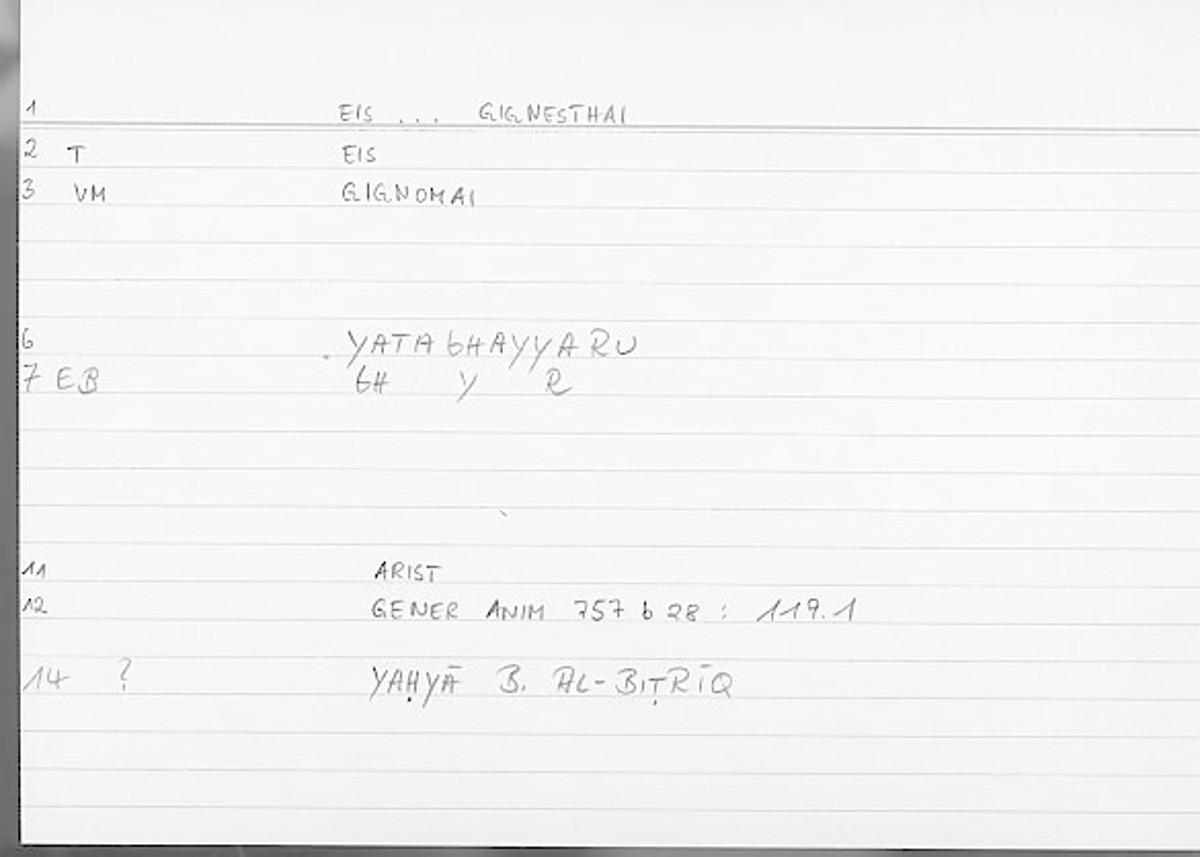 1 EIS ... GIGNESTHAI
2 T EIS
3 VM GIGNOMAI
6 . YATAGHAYYARU
7 EB GH Y R
11 ARIST
12 GENER ANIM 757 b 28 : 119.1
14 ? YAḤYĀ B. AL-BIṬRĪQ